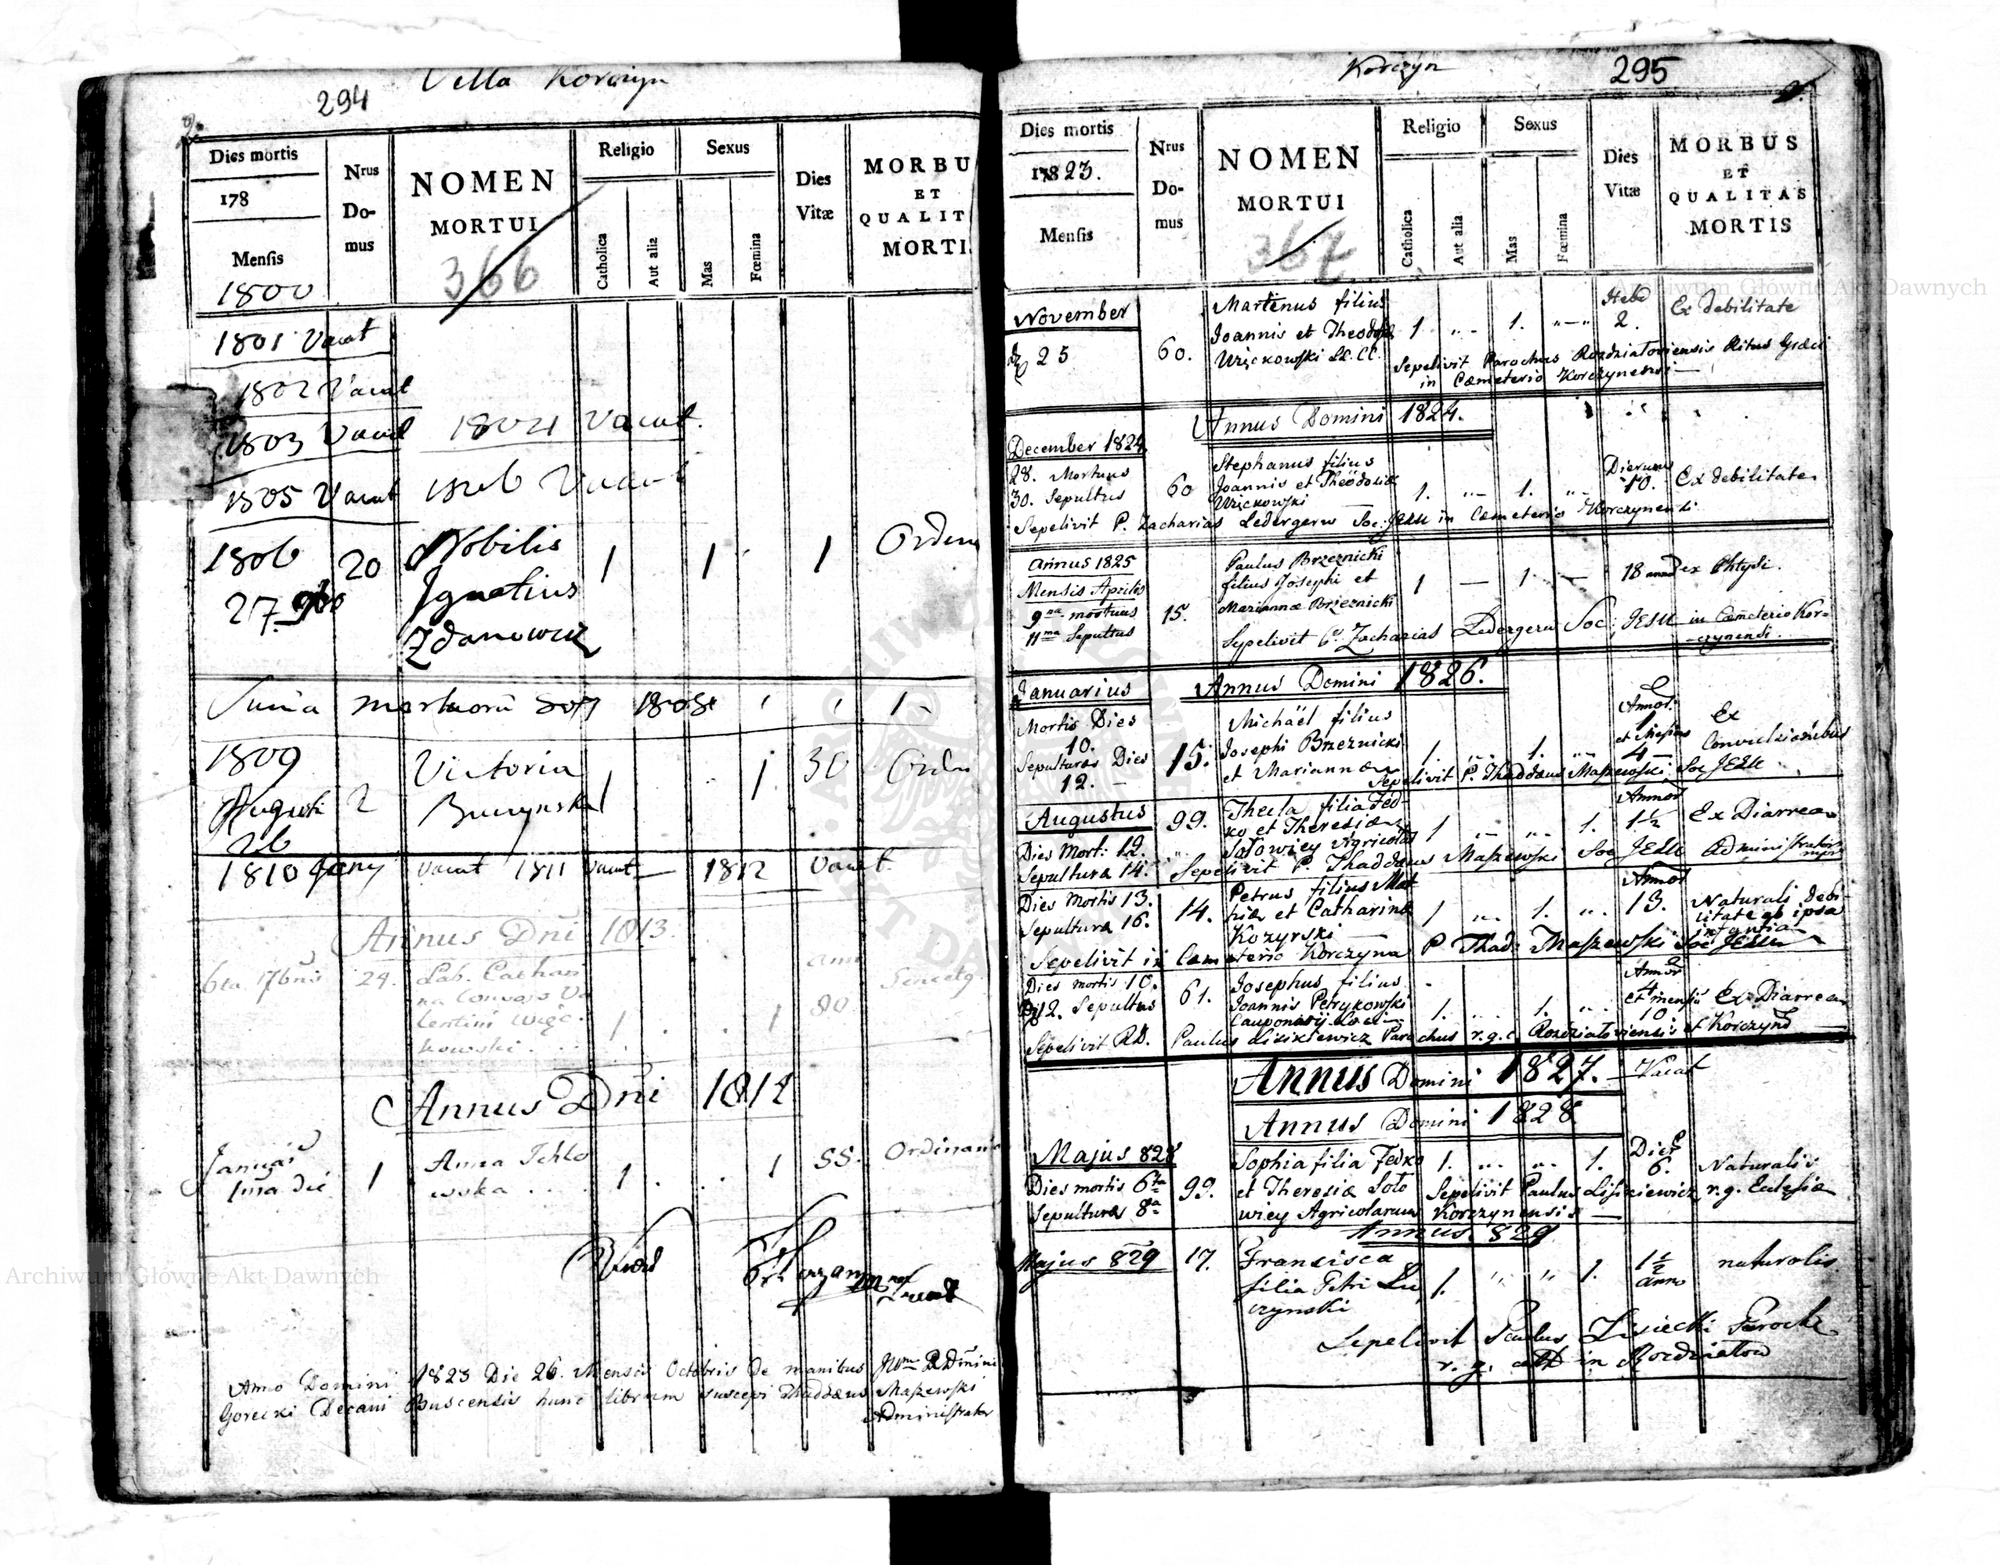 294
Villa Korczyn
2.
Dies mortis
178
Mensis
1800
Nrus
Do-
mus
NOMEN
MORTUI
366
Religio
Catholica
Aut alia
Sexus
Mas
Fœmina
Dies
Vitæ
MORBU
ET
QUALIT
MORTI
1801 Vacat
1802 Vacat
1803 Vacat 1804 Vacat
1805 Vacat 1806 Vacat
1806 20 Nobilis 1 1 1 Ordina
27. 9bris Ignatius
Zdanowicz
Suma mortuorũ 1808
1809 Victoria 1 1 30 Ordin
Augusti 2 Buczynska
26
1810 Vacat 1811 Vacat 1812 Vacat
Annus Dni 1813
24. Lab. Cathari
na
lentini
kowski 1 1 80
Annus Dñi 1814
Januar 1 Anna 1 1 Ordinaria
1ma die
Anno Domini 1823 Die 26. Mensis Octobris de manibus
Gorecki Decani Buscensis hunc librum suscepi Thaddæus Maszewski
Administrator
Korczyn
295
Dies mortis
1823.
Mensis
Nrus
Do-
mus
NOMEN
MORTUI
367
Religio
Catholica
Aut alia
Sexus
Mas
Fœmina
Dies
Vitæ
MORBUS
ET
QUALITAS
MORTIS
November Martinus filius Hebd
25 60. Joannis et Theodosiæ 1. „ 1. „ 2. Ex debilitate
Więckowski
Sepelivit Parochus Rozdziatoviensis Ritus Græci
in Cæmeterio Korczynensi
Annus Domini 1824.
December 1824
28. Mortuus Stephanus filius Dierum
30. Sepultus 60 Joannis et Theodosiæ 1. „ 1. „ 10. Ex debilitate
Więckowski
Sepelivit P. Zacharias Ledergerw Soc: JESU in Cæmeterio Korczynensi
Annus 1825 Paulus Brzeznicki
Mensis Aprilis filius Josephi et 1 — 1 — 18 ex Phtysi.
9na mortuus 15. Mariannæ Brzeznicki
11ma Sepultus Sepelivit P. Zacharias Ledergerw Soc: JESU in Cæmeterio Kor-
czynensi.
Januarius Annus Domini 1826.
Mortis Dies Michaël filius Annor. Ex
10. 15. Josephi Brzeznicki 1. „ 1. „ et Mensium Convulsionibus
Sepulturæ Dies et Mariannæ 4
12. Sepelivit P. Thaddæus Maszewski Soc JESU
Augustus 99. Thecla filia Fed- Annor
Dies Mort: 12. ko et Theresiæ 1 „ „ 1. 1½ Ex Diarrea
Sołowiey Agricolar
Sepultura 14. Sepelivit P. Thaddæus Maszewski Soc JESU Administrator
Dies Mortis 13. Petrus filius Mat Annor
Sepultura 16. 14. hiæ et Catharinæ 1 „ 1. „ 13. Naturali debi-
Kozyrski litate ab ipsa
infantia
Sepelivit in Cæmeterio Korczyna P Thad: Maszewski Soc JESU
Dies mortis 10. Josephus filius Annor
12. Sepultus 61. Joannis Petrykowski 1. „ 1. „ 4 et mensiũ Ex Diarrea
Cauponarij Loci 10.
Sepelivit RD. Paulus Lisikiewicz Parochus r.g.c. Rozdziatoviensis et Korczyno
Annus Domini 1827. Vacat
Annus Domini 1828
Majus 828 Sophia filia Fedko 1. „ „ 1. Dier 6. Naturalis
Dies mortis 6ta 99. et Theresiæ Soło Sepelivit Paulus Lisikiewicz r. g. Eclesiæ
Sepultura 8a wiey Agricolarum Korczynensis
Annus 829
Majus 829 17. Francisca 1½ naturalis
filia Petri Lu 1. „ „ 1. anno
czynski
Sepelivit Paulus Lisiecki Paroch
r. g. in Rozdziatow
Archiwum Główne Akt Dawnych
Archiwum Główne Akt Dawnych